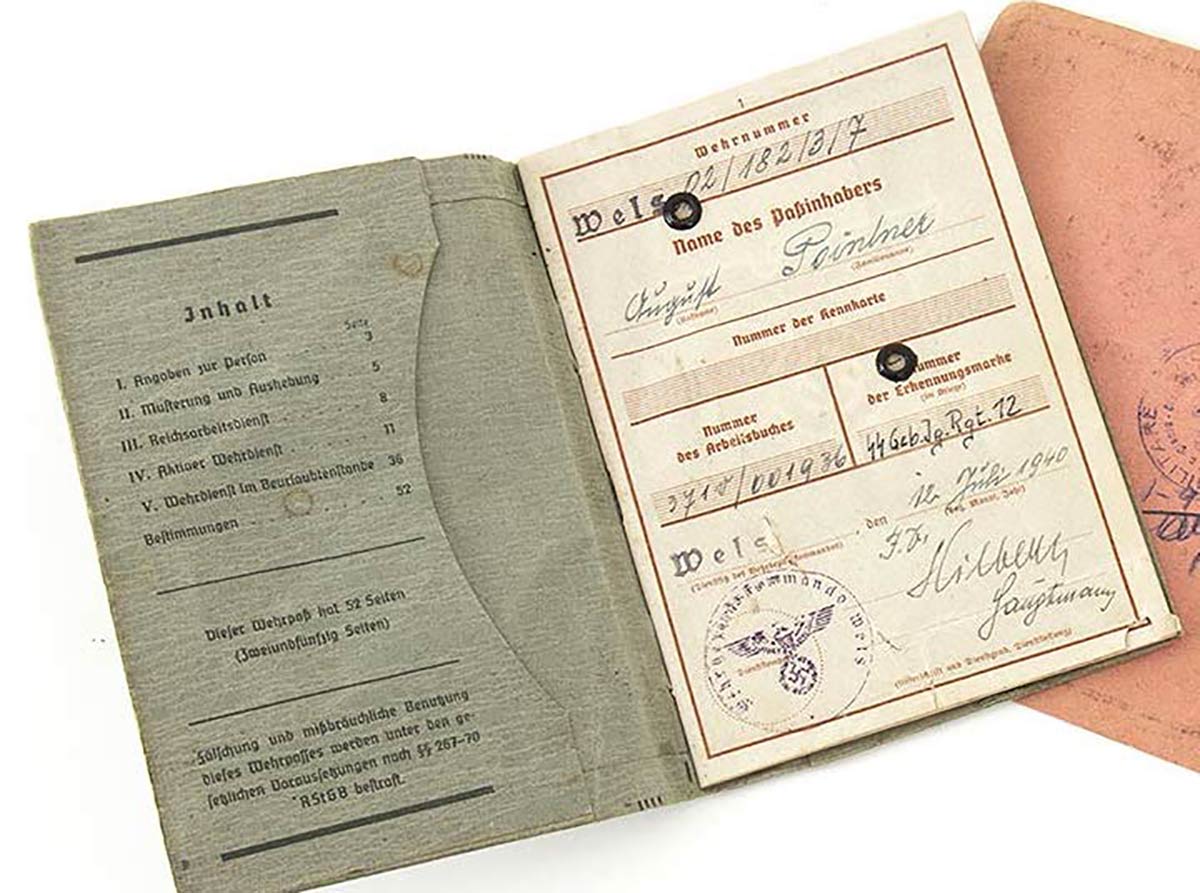 Inhalt
Seite
I. Angaben zur Person . . . 3
II. Musterung und Aushebung . . 5
III. Reichsarbeitsdienst . . . . . 8
IV. Aktiver Wehrdienst . . . . . 11
V. Wehrdienst im Beurlaubtenstande 36
Bestimmungen . . . . . . . 52
Dieser Wehrpaß hat 52 Seiten
(Zweiundfünfzig Seiten)
Fälschung und mißbräuchliche Benutzung
dieses Wehrpasses werden unter den ge-
setzlichen Voraussetzungen nach §§ 267-70
RStGB bestraft.
1
Wehrnummer
Wels 02/182/3/7
Name des Paßinhabers
August Pointner
(Vorname) (Familienname)
Nummer der Kennkarte
Nummer
des Arbeitsbuches
Nummer
der Erkennungsmarke
(im Kriege)
371b/001936
Geb.Jg.Rgt.12
Wels, den 12. Juli 1940
(Tag, Monat, Jahr)
Hauptmann
Wehrbezirkskommando Wels
(Unterschrift und Dienstgrad, Dienststellung)